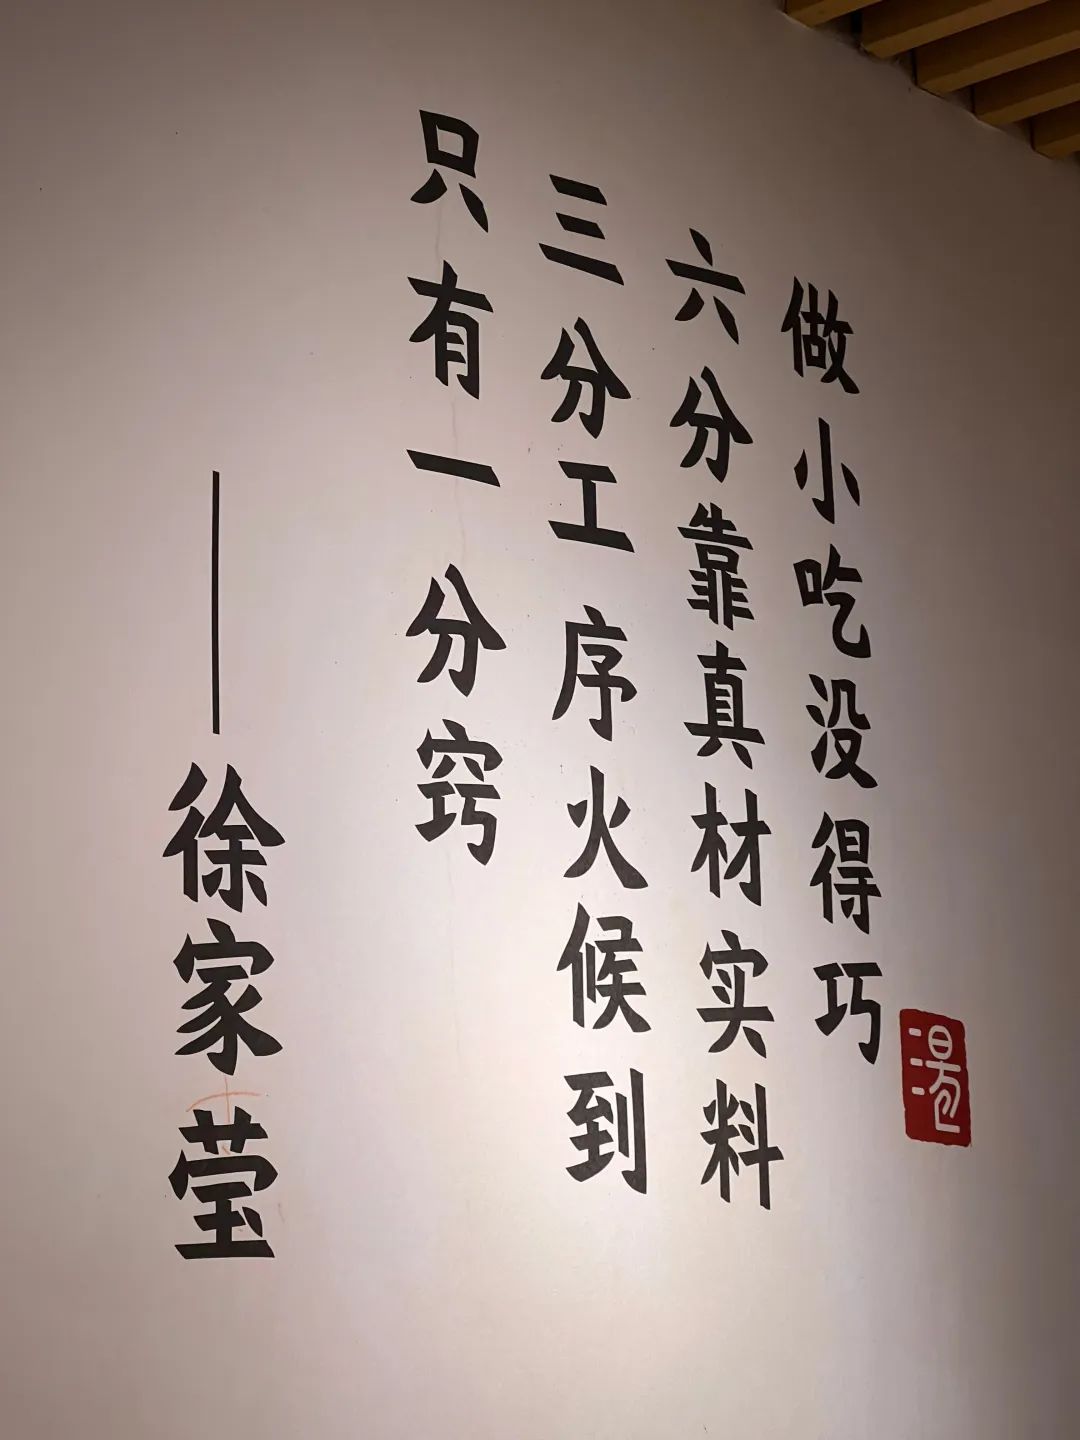 做小吃没得巧
六分靠真材实料
三分工序火候到
只有一分窍
——徐家莹